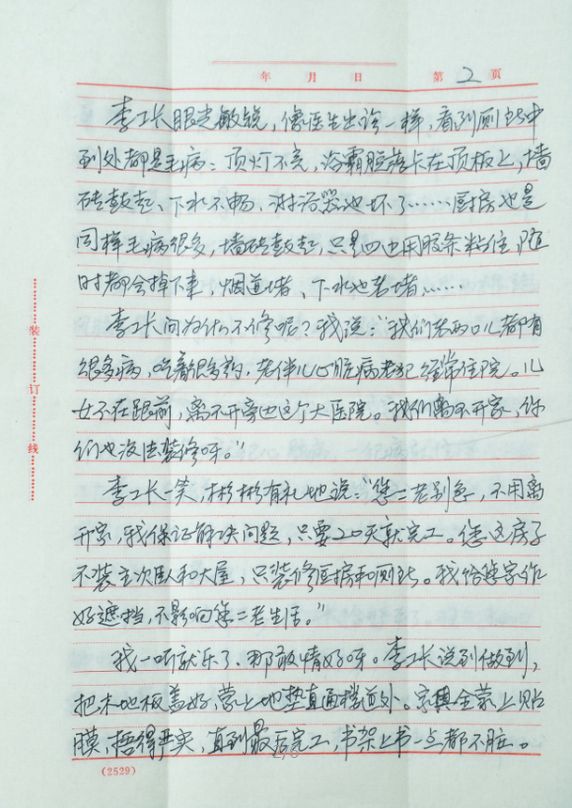 年 月 日 第 2 页
李工长眼光敏锐，像医生出诊一样，看到厕所中
到处都是毛病：顶灯不亮，浴霸脱落卡在顶板上，墙
砖鼓起、下水不畅、淋浴器也坏了……厨房也是
同样毛病很多，墙砖鼓起，只是四边用胶条粘住，随
时都会掉下来，烟道堵、下水也老堵……
李工长问为什么不修呢？我说："我们老两口儿都有
很多病，吃着很多药，老伴儿心脏病老犯经常住院。儿
女不在跟前，离不开旁边这个大医院。我们离不开家，你
们也没法装修呀。"
李工长一笑，彬彬有礼地说："您二老别急，不用离
开家，我保证解决问题，只要20天就完工。您这房子
不装主次卧和大屋，只装修厨房和厕所。我给您家作
好遮挡，不影响您二老生活。"
我一听就乐了，那敢情好呀。李工长说到做到，
把木地板盖好，蒙上地垫直通楼道外。家具全蒙上贴
膜，捂得严实，直到最后完工，书架上书一点都不脏。
装
订
线
(2529)